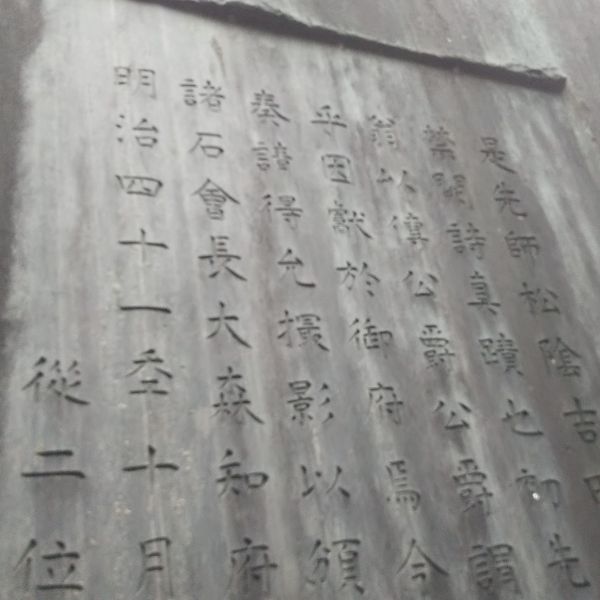 是先師松陰吉田
禁闕詩真蹟也初先
翁以傳公爵公爵謂
乎因獻於御府焉今
奏請得允撮影以頒
諸石會長大森知府
明治四十一年十月
從二位